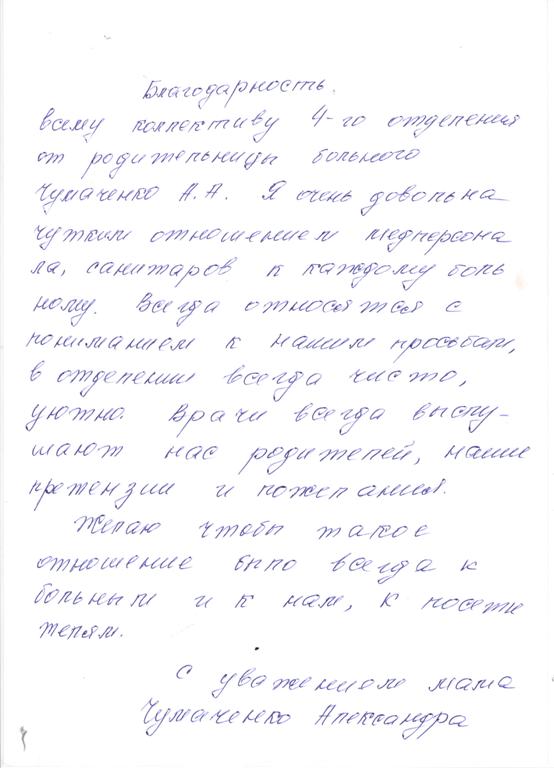 Благодарность.
всему коллективу 4-го отделения
от родительницы больного
Чумаченко А.А. Я очень довольна
чутким отношением медперсона
ла, санитаров к каждому боль
ному. Всегда относятся с
пониманием к нашим просьбам,
в отделении всегда чисто,
уютно. Врачи всегда выслу-
шают нас родителей, наши
претензии и пожелания.
Желаю чтобы такое
отношение было всегда к
больным и к нам, к посети
телям.
С уважением мама
Чумаченко Александра